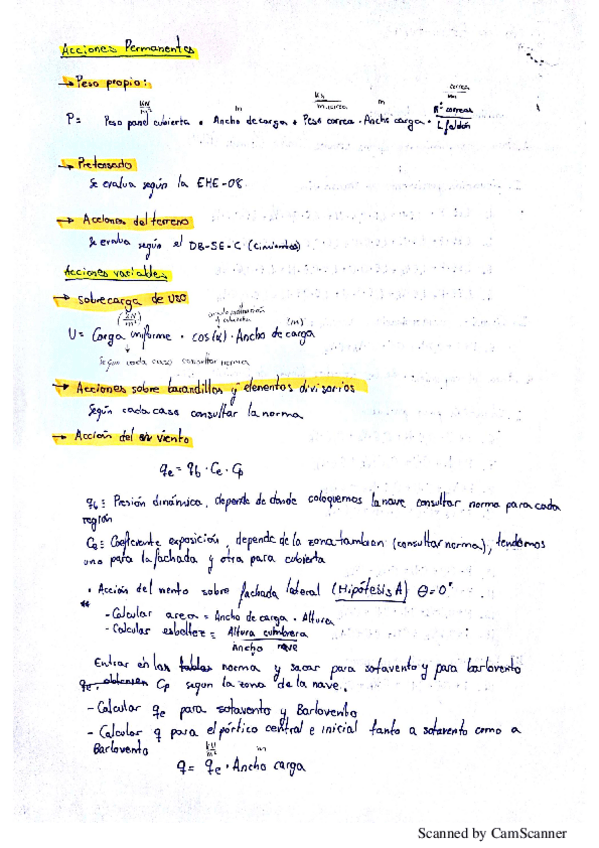 Acciones Permanentes
→ Peso propio:
P= Peso panel cubierta (kN/m²) · Ancho de carga (m) + Peso correa (kN/m.correa) · Ancho carga (m) · Nº correas / L faldón
→ Pretensado
Se evalua según la EHE-08.
→ Acciones del terreno
Se evalua según el DB-SE-C (cimientos)
Acciones variables
→ Sobrecarga de uso
U= Carga uniforme (kN/m²) · cos(α) · Ancho de carga (m)
Según cada caso consultar norma
→ Acciones sobre barandillas y elementos divisorios
Según cada caso consultar la norma
→ Acción del viento
qe = qb · Ce · Cp
qb: Presión dinámica, depende de donde coloquemos la nave consultar norma para cada
región
Ce: Coeficiente exposición, depende de la zona tambien (consultar norma), tendremos
uno para la fachada y otra para cubierta
• Acción del viento sobre fachada lateral (Hipótesis A) θ=0°
- Calcular area = Ancho de carga · Altura
- Calcular esbeltez = Altura cumbrera / Ancho nave
Entrar en las tablas norma y sacar para sotavento y para barlovento
Cp segun la zona de la nave.
- Calcular qe para sotavento y Barlovento
- Calcular q para el pórtico central e inicial tanto a sotavento como a
Barlovento
q = qe (kN/m²) · Ancho carga (m)
Scanned by CamScanner